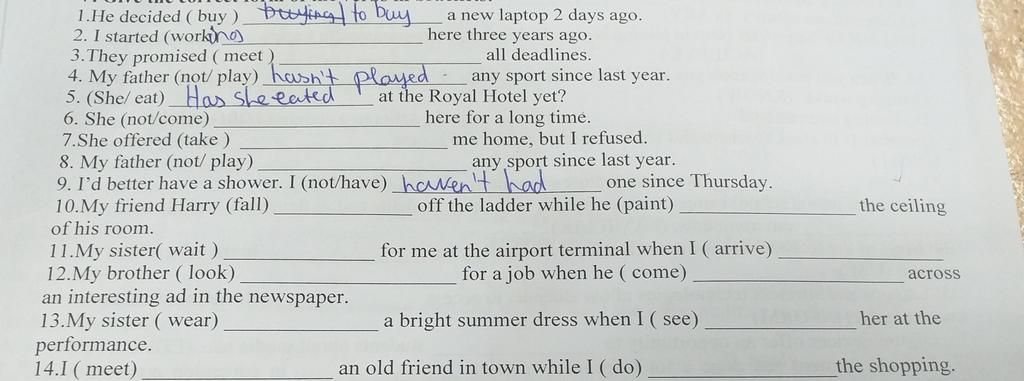 1.He decided ( buy ) buying to buy a new laptop 2 days ago.
2. I started (working ____ here three years ago.
3.They promised ( meet ) ____ all deadlines.
4. My father (not/ play) hasn't played any sport since last year.
5. (She/ eat) Has she eated at the Royal Hotel yet?
6. She (not/come) ____ here for a long time.
7.She offered (take ) ____ me home, but I refused.
8. My father (not/ play) ____ any sport since last year.
9. I'd better have a shower. I (not/have) haven't had one since Thursday.
10.My friend Harry (fall) ____ off the ladder while he (paint) ____ the ceiling
of his room.
11.My sister( wait ) ____ for me at the airport terminal when I ( arrive) ____
12.My brother ( look) ____ for a job when he ( come) ____ across
an interesting ad in the newspaper.
13.My sister ( wear) ____ a bright summer dress when I ( see) ____ her at the
performance.
14.I ( meet) ____ an old friend in town while I ( do) ____ the shopping.